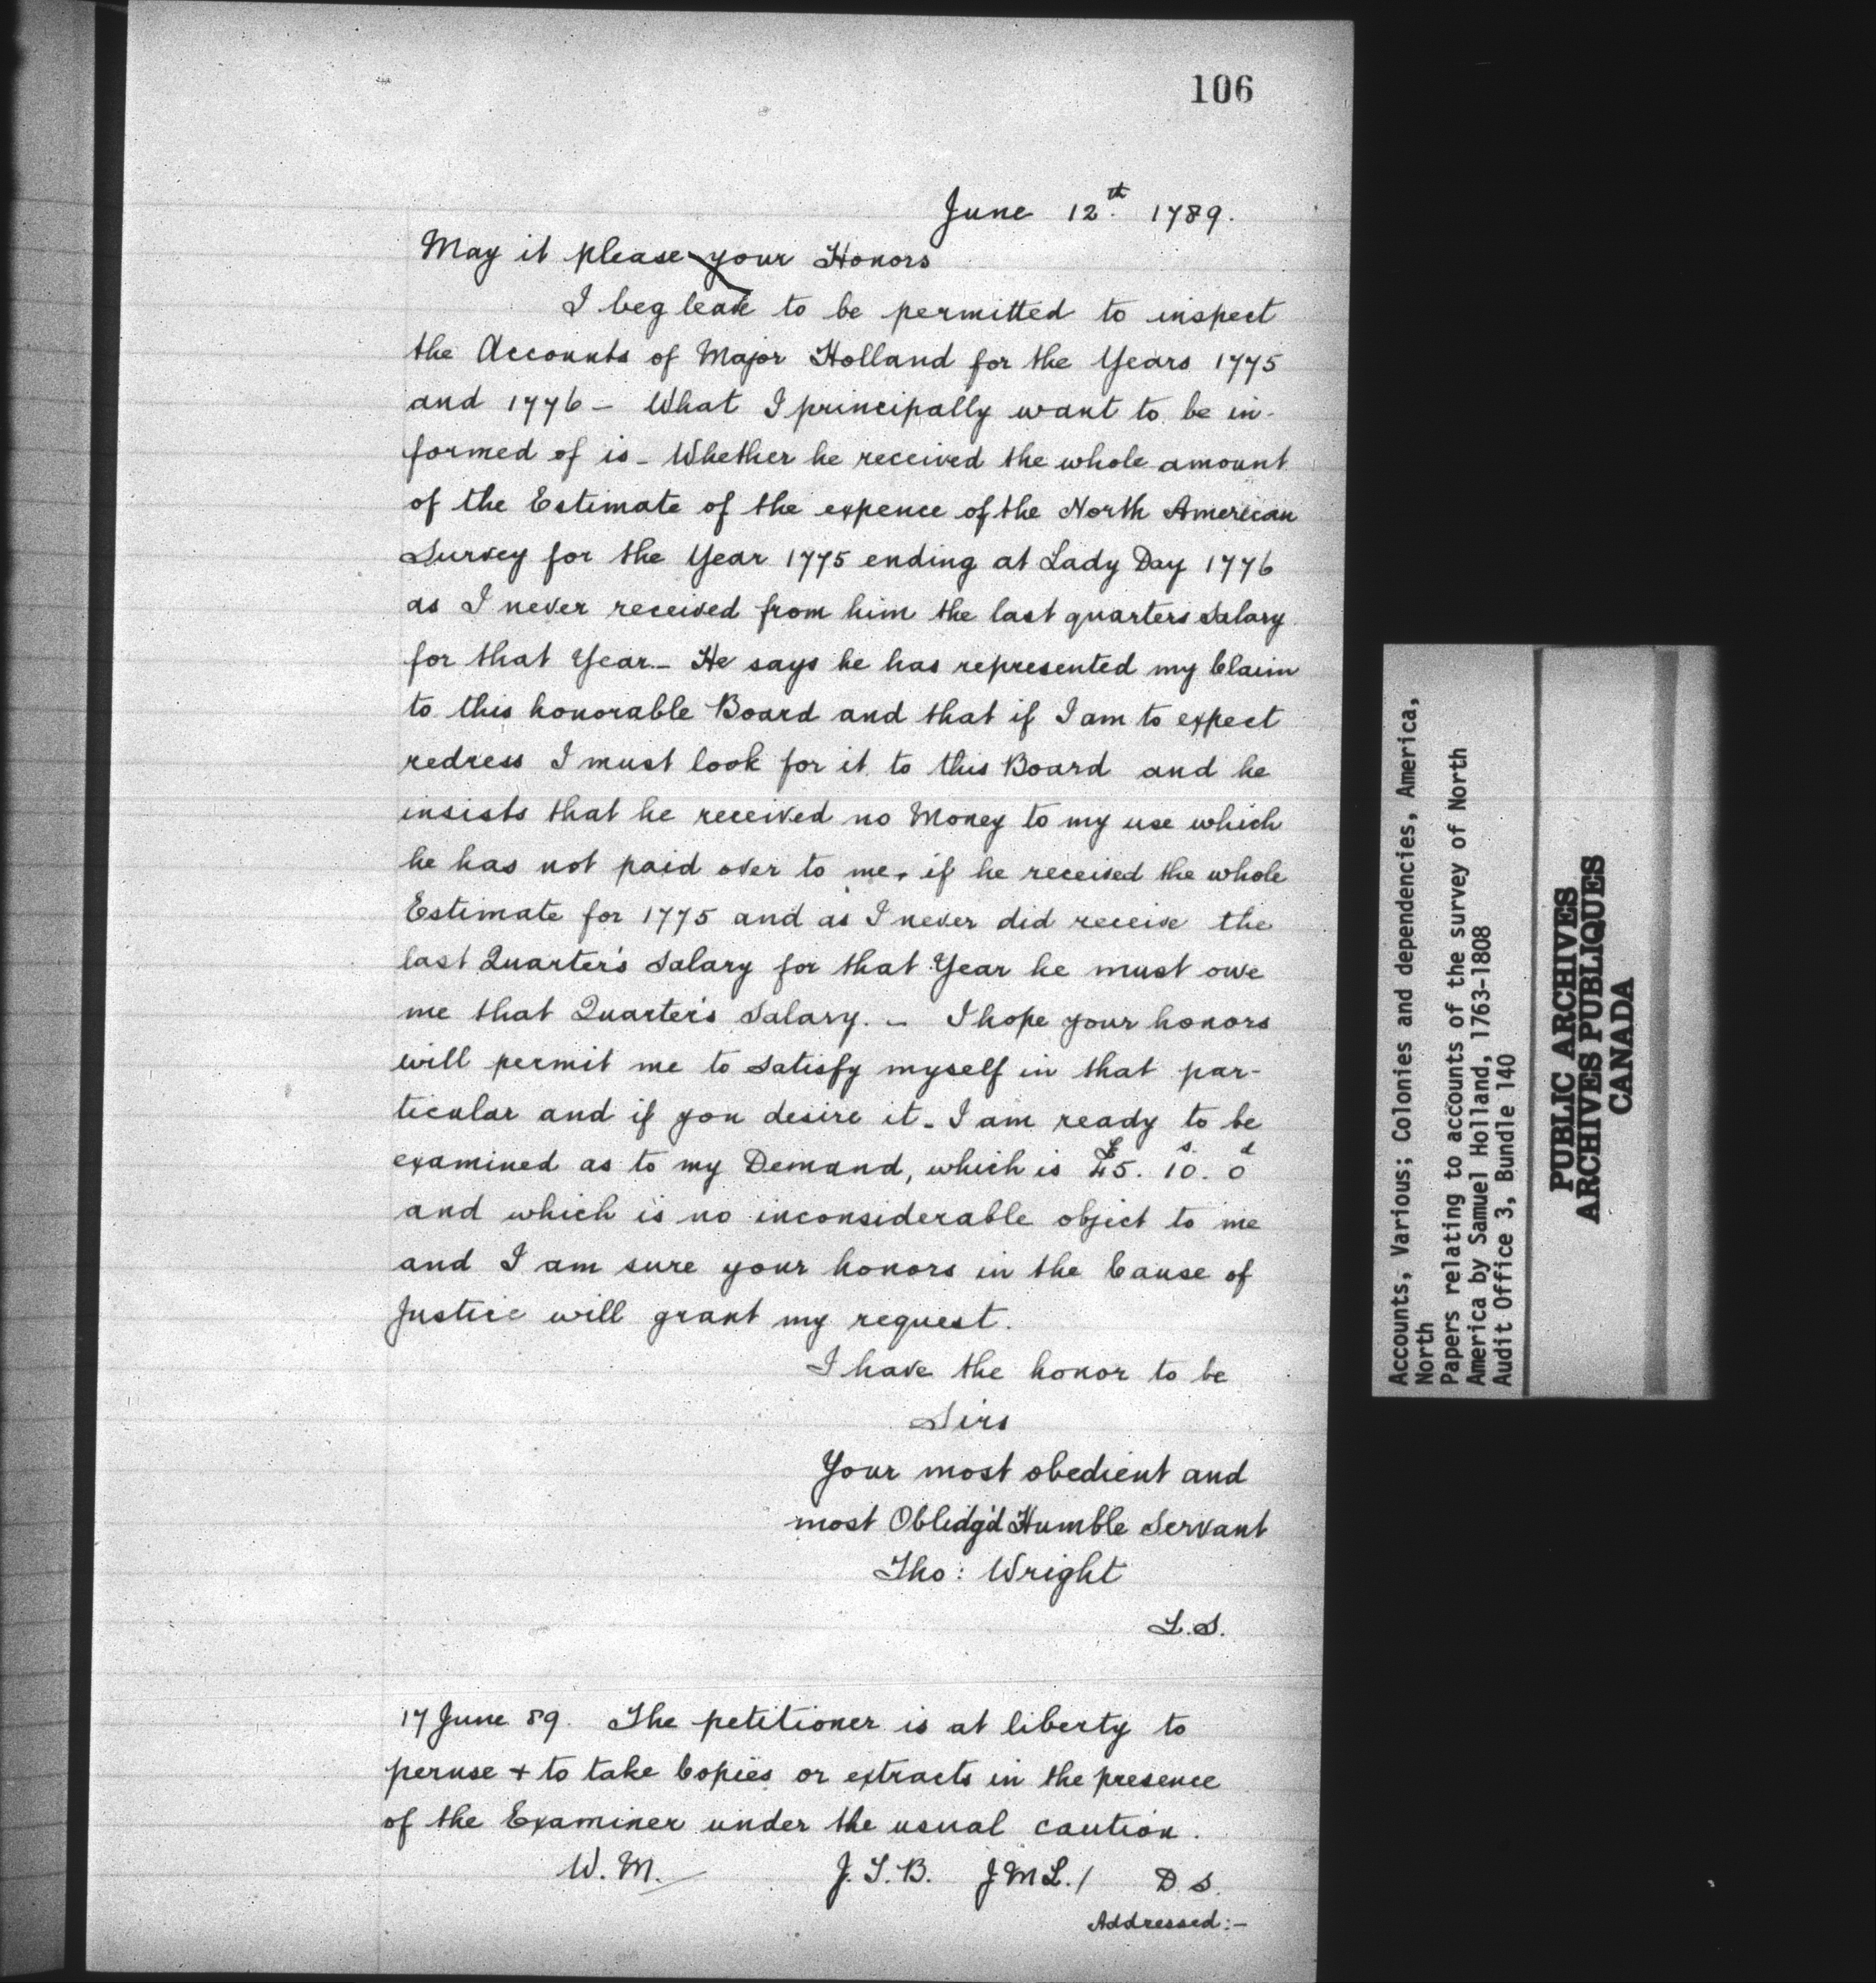 106
June 12th. 1789.
May it please your Honors
I beg leave to be permitted to inspect
the Accounts of Major Holland for the Years 1775
and 1776 - What I principally want to be in-
formed of is - Whether he received the whole amount
of the Estimate of the expence of the North American
Survey for the Year 1775 ending at Lady Day 1776
as I never received from him the last quarters Salary
for that Year - He says he has represented my Claim
to this honorable Board and that if I am to expect
redress I must look for it to this Board and he
insists that he received no Money to my use which
he has not paid over to me, if he received the whole
Estimate for 1775 and as I never did receive the
last Quarter's Salary for that Year he must owe
me that Quarter's Salary. - I hope your honors
will permit me to satisfy myself in that par-
ticular and if you desire it - I am ready to be
examined as to my Demand, which is £45. 10s. 0d
and which is no inconsiderable object to me
and I am sure your honors in the Cause of
Justice will grant my request.
I have the honor to be
Sirs
Your most obedient and
most Oblidg'd Humble Servant
Tho: Wright
L.S.
17 June 89. The petitioner is at liberty to
peruse + to take Copies or extracts in the presence
of the Examiner under the usual caution.
W. M. J. T. B. J M L. / D S.
Addressed:-
Accounts, Various; Colonies and dependencies, America,
North
Papers relating to accounts of the survey of North
America by Samuel Holland, 1763-1808
Audit Office 3, Bundle 140
PUBLIC ARCHIVES
ARCHIVES PUBLIQUES
CANADA